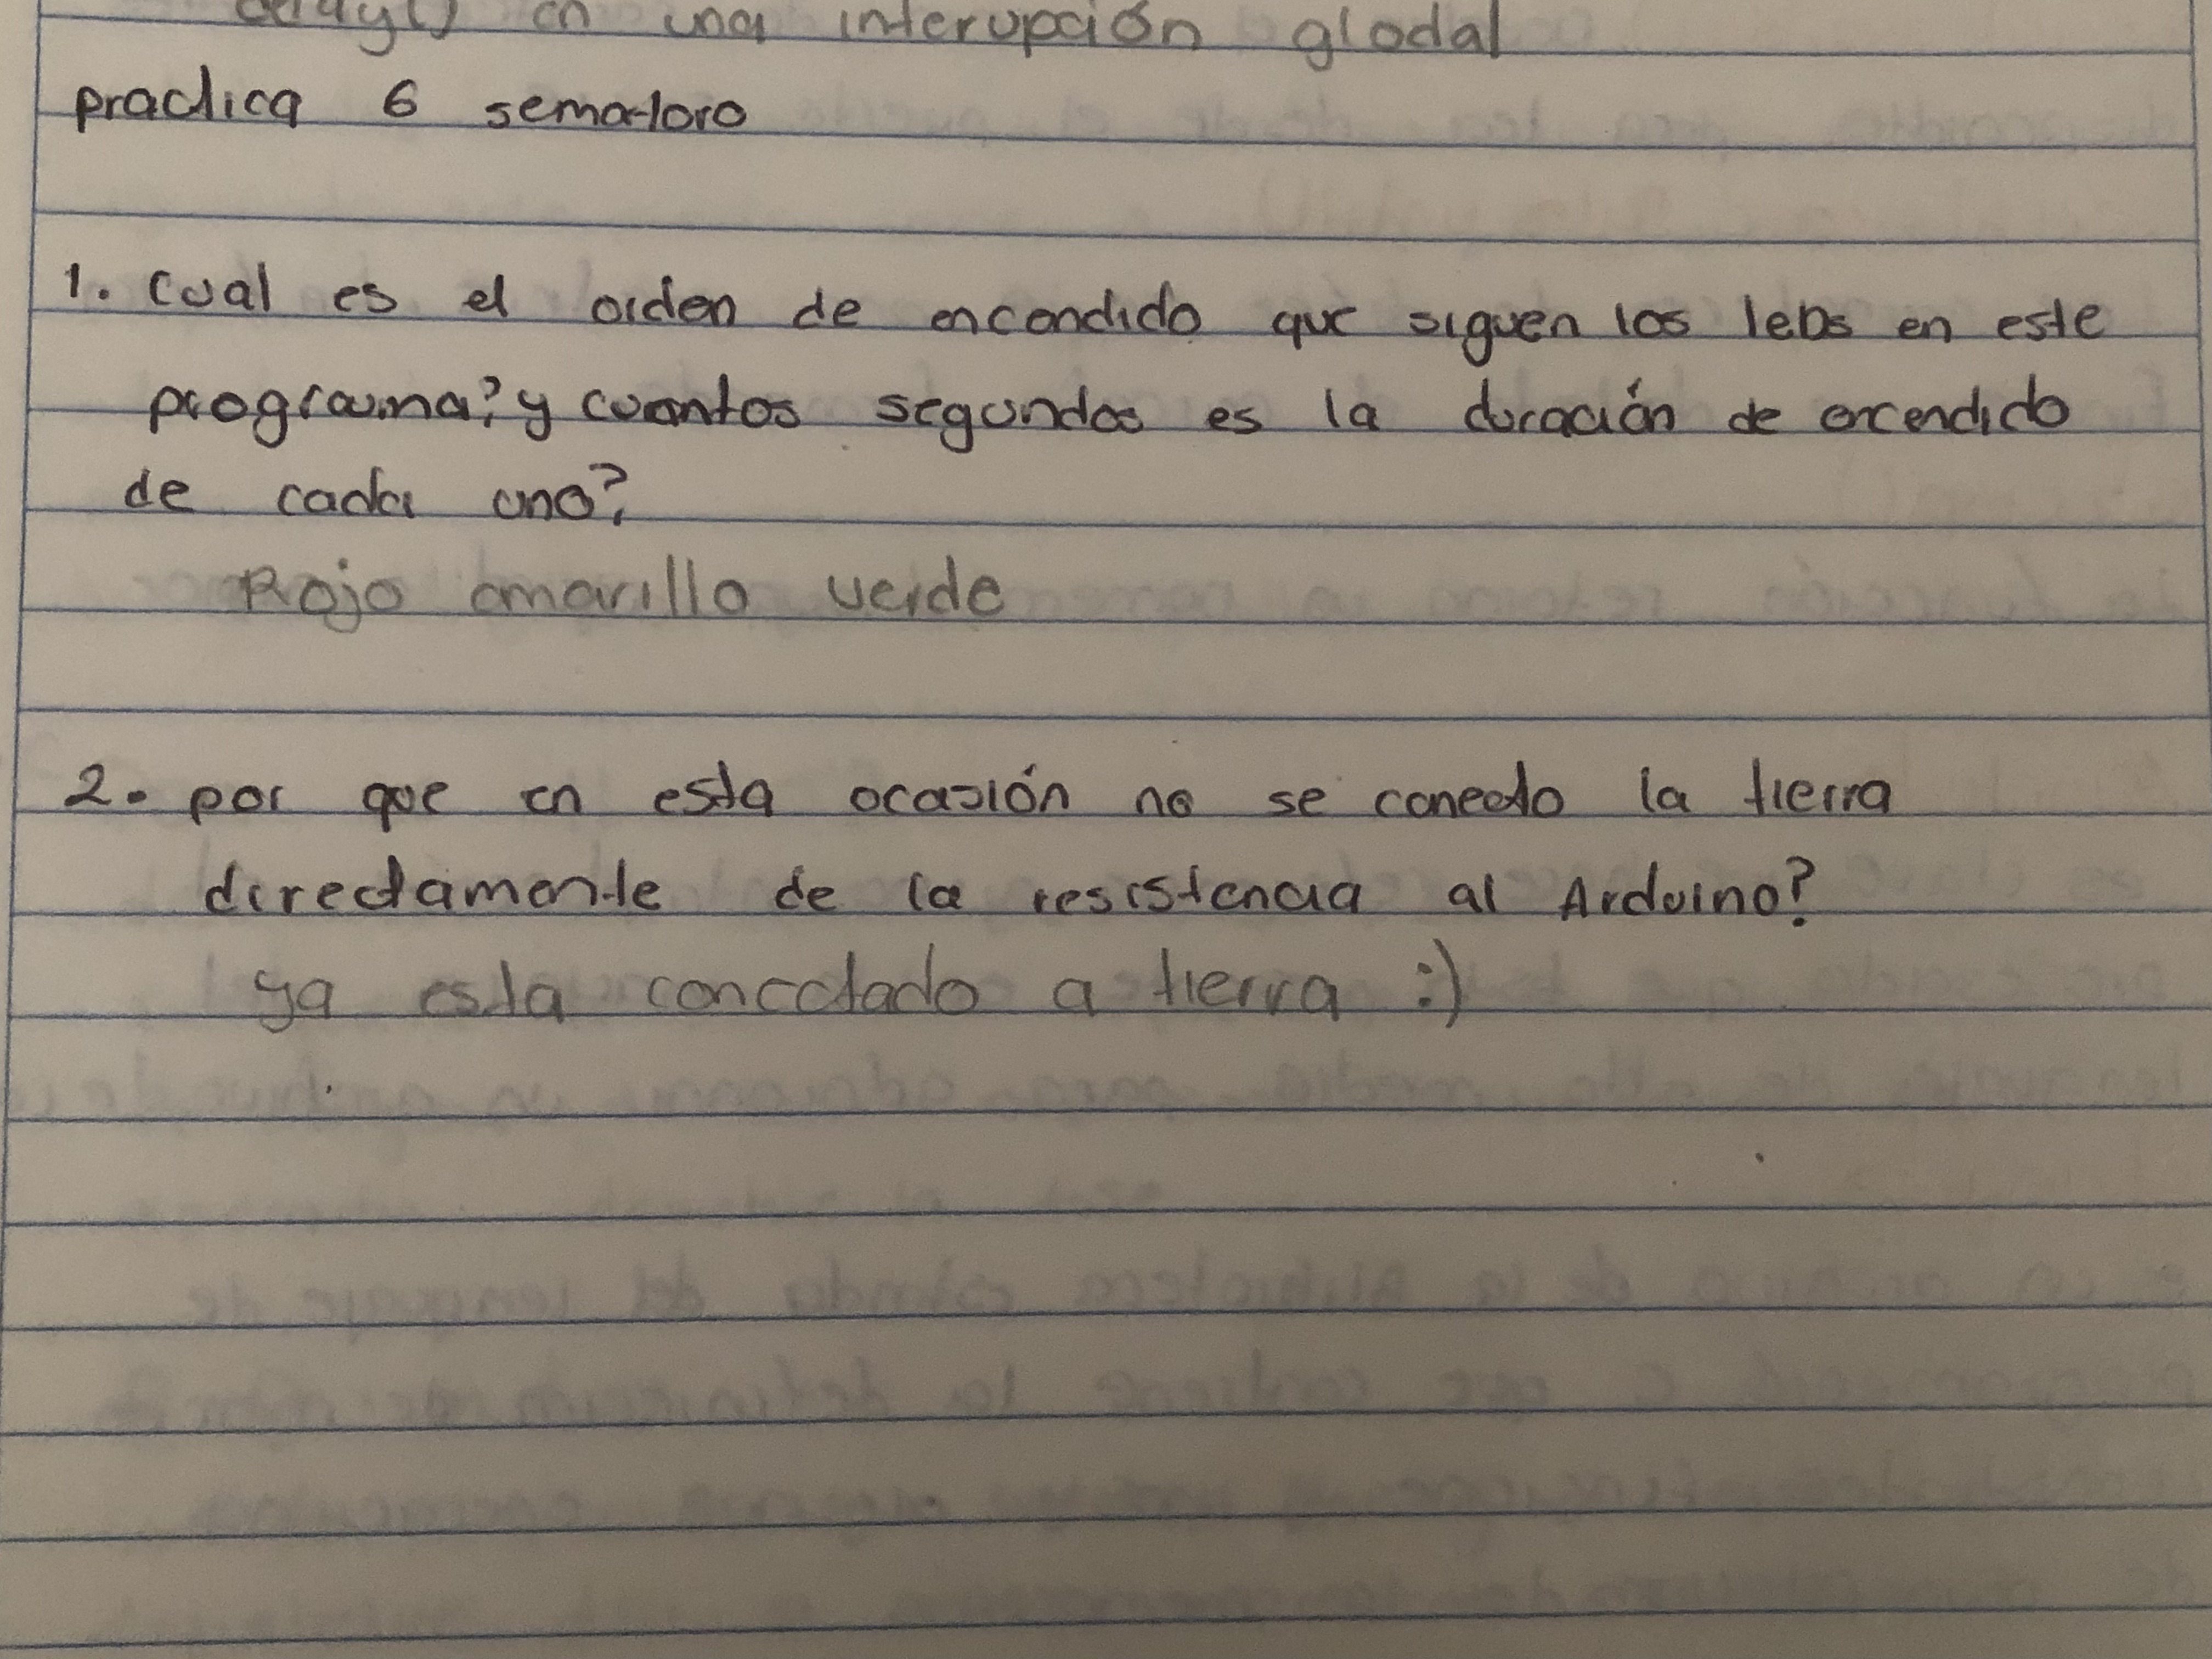 delay() en una interupción glodal
practica 6 semaforo
1. Cual es el orden de encendido que siguen los leDs en este
programa? y cuantos segundos es la duración de encendido
de cada uno?
Rojo amarillo verde
2. por que en esta ocasión no se conecto la tierra
directamente de la resistencia al Arduino?
ya esta conectado a tierra :)